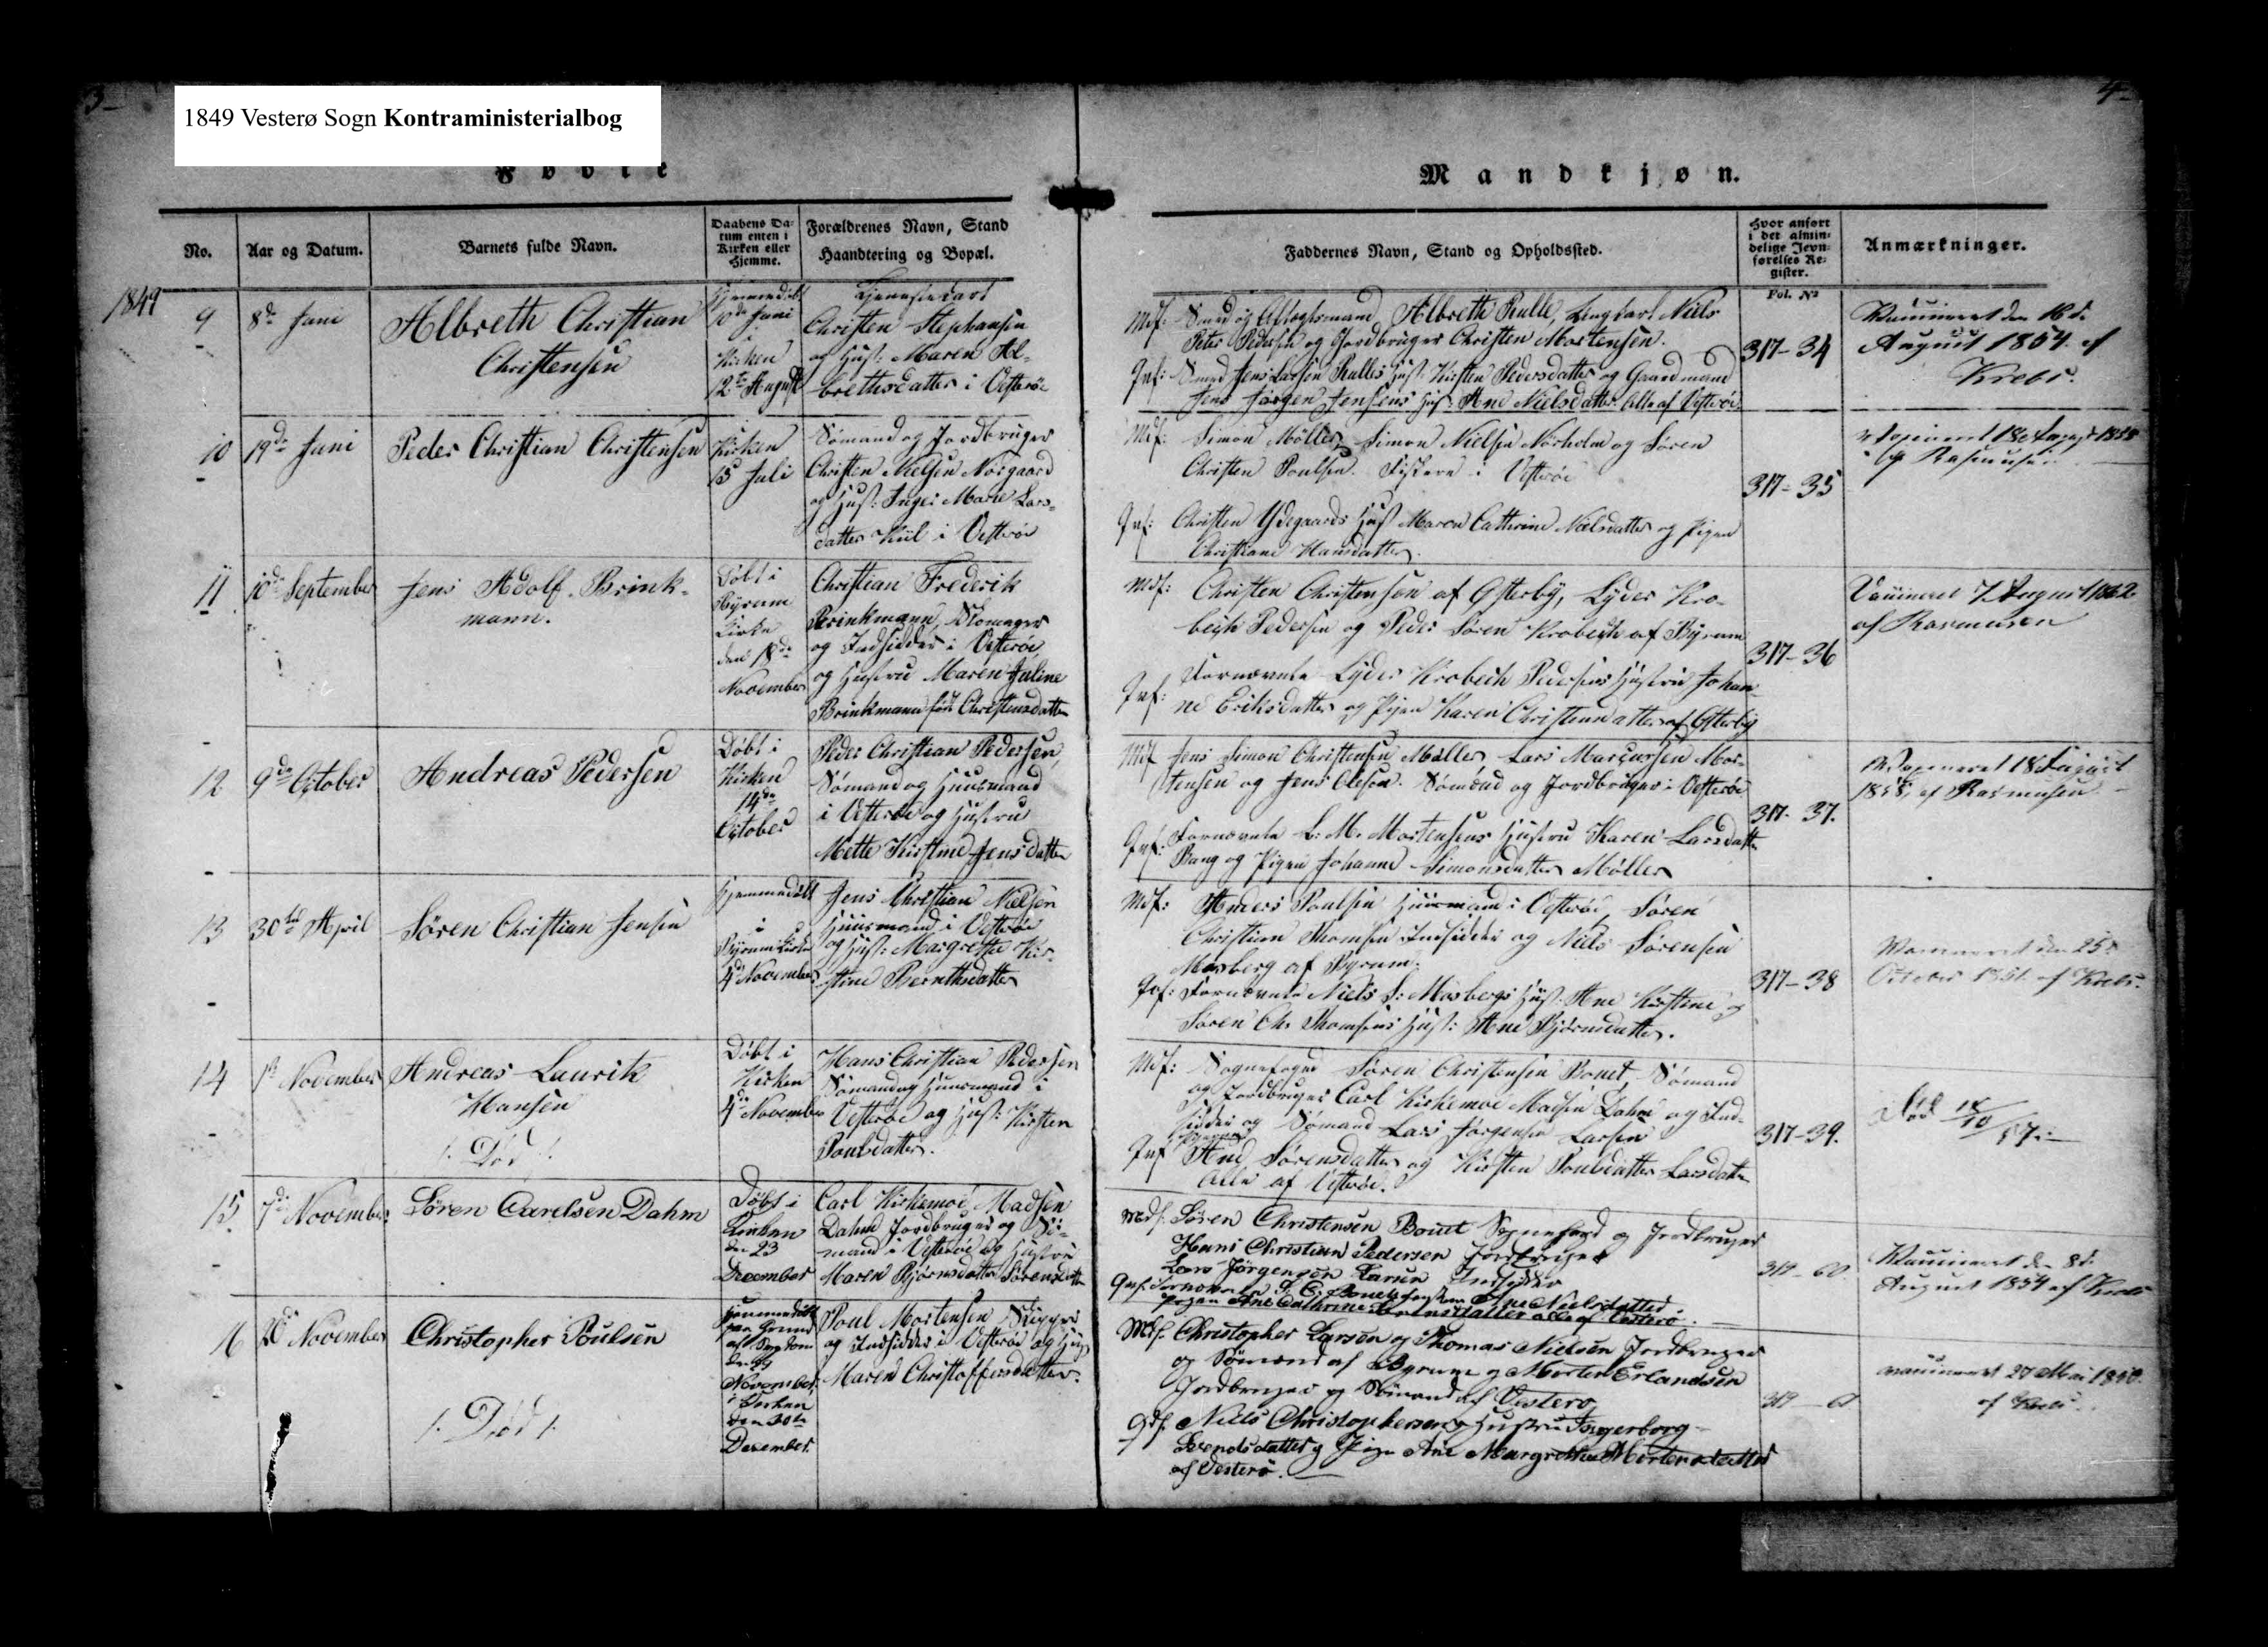 3-
4-
1849 Vesterø Sogn Kontraministerialbog
Fødte
Mandkjøn.
No.
Aar og Datum.
Barnets fulde Navn.
Daabens Da-
tum enten i
Kirken eller
Hjemme.
Forældrenes Navn, Stand
Haandtering og Bopæl.
Faddernes Navn, Stand og Opholdssted.
Hvor anført
i det almin-
delige Jevn-
førelses Re-
gister.
Anmærkninger.
Fol. No
1849
9
8de Juni
Albreth Christian
Christensen
Hjemmedøbt
10de Juni
i
Kirken
12te August
Tjenestekarl
Christen Stephansen
og Hust: Maren Al-
brethsdatter i Vesterøe
Mdf: Smed og Aftægtsmand Albreth Rulle, Ungkarl Niels
Peter Pedersen og Jordbruger Christen Mortensen.
Qvf: Smed Jens Larsen Rulles Hust: Kirsten Pedersdatter og Gaardmand
Jens Jørgen Jensens Hust: Ane Nielsdatter. Alle af Vesterøe.
317-34
August 1854 af
Krebs.
10
19de Juni
Peder Christian Christensen
Kirken
15 Juli
Sømand og Jordbruger
Christen Nielsen Norgaard
og Hust: Inger Marie Lars-
datter Kiil i Vesterøe
Mdf: Simon Møller, Simon Nielsen Nørholm og Søren
Christen Poulsen. Fiskere i Vesterøe
Qvf: Christen Ydegaards Hust Maren Cathrine Nielsdatter og Pigen
Christiane Hansdatter.
317-35
af Rasmusen
11
10de September
Jens Adolf Brink-
mann.
Døbt i
Byrum
Kirke
den 18de
November
Christian Frederik
Brinkmann, Skomager
og Indsidder i Vesterøe,
og Hustru Maren Juline
Brinkmann født Christensdatter
Mdf: Christen Christensen af Østerby, Lyder Kro-
beck Pedersen og Peder Søren Krobeck af Byrum
Qvf: Fornævnte Lyder Krobeck Pedersens Hustru Johan-
ne Eriksdatter og Pigen Karen Christiansdatter af Østerby
317-36
Vaccineret 7 August 1862
af Rasmusen
12
9de October
Andreas Pedersen
Døbt i
Kirken
14de
October
Peder Christian Pedersen,
Sømand og Huusmand
i Vesterøe og Hustru
Mette Kirstine Jensdatter
Mdf Jens Simon Christensen Møller, Lars Marcussen Mor-
tensen og Jens Olesen. Sømænd og Jordbruger i Vesterøe
Qvf: Fornævnte L. M. Mortensens Hustru Karen Larsdatter
Bang og Pigen Johanne Simonsdatter Møller
317-37.
Vaccineret 18 August
1858, af Rasmusen
13
30te April
Søren Christian Jensen
Hjemmedøbt
i
Byrum Kirke
4de November
Jens Christian Nielsen
Huusmand i Vesterøe
og Hust: Margrethe Kir-
stine Bernthsdatter
Mdf: Anders Poulsen Huusmand i Vesterøe, Søren
Christian Thomsen Indsidder og Niels Sørensen
Mosberg af Byrum.
Qvf: Fornævnte Niels S: Mosbergs Hust: Ane Kirstine og
Søren Chr Thomsens Hust: Ane Bjørnsdatter.
317-38
Vaccineret den 25de
October 1851 af Krebs.
14
1ste November
Andreas Laurik
Hansen
/: Død :/
Døbt i
Kirken
4de November
Hans Christian Pedersen
Sømand og Huusmand i
Vesterøe og Hust: Kirsten
Poulsdatter.
Mdf: Sognefoged Søren Christensen Bonet, Sømand
og Jordbruger Carl Kirkemoe Madsen Dahm og Ind-
sidder og Sømand Lars Jørgensen Larsen
Qvf Ane Sørensdatter og Kirsten Poulsdatter Larsdatter
Alle af Vesterøe.
317-39.
Død 18/10 57.
15
7de November
Søren Carelsen Dahm
Døbt i
Kirken
den 23
December
Carl Kirkemoe Madsen
Dahm Jordbruger og Sø-
mand i Vesterøe og Hustru
Maren Bjørnsdatter Sørensdatter
Mdf. Søren Christensen Bonet Sognefoged og Jordbruger
Hans Christian Pedersen Jordbruger
Lars Jørgensen Larsen Indsidder
Qvf. Fornævnte S. C. Bonets Hustru Ane Nielsdatter
Pigen Ane Cathrine Sørensdatter alle af Vesterø.
319-60
Vaccineret den 8de
August 1854 af Krebs
16
November
Christopher Poulsen
/: Død :/
Hjemmedøbt
paa Grund
af Sygdom
den 29
November
i Kirken
den 30te
December
Poul Mortensen, Skipper
og Indsidder i Vesterøe og Hust
Maren Christoffersdatter.
Mdf. Christopher Larsen og Thomas Nielsen Jordbruger
og Sømænd af Byrum og Morten Erlandsen
Jordbruger og Sømand af Vesterø
Qvf. Niels Christophersens Hustru Ingerborg
Svendsdatter og Pige Ane Margrethe Mortensdatter
af Vesterø.
319-61
Vaccineret 27 Mai 1850.
af Krebs.